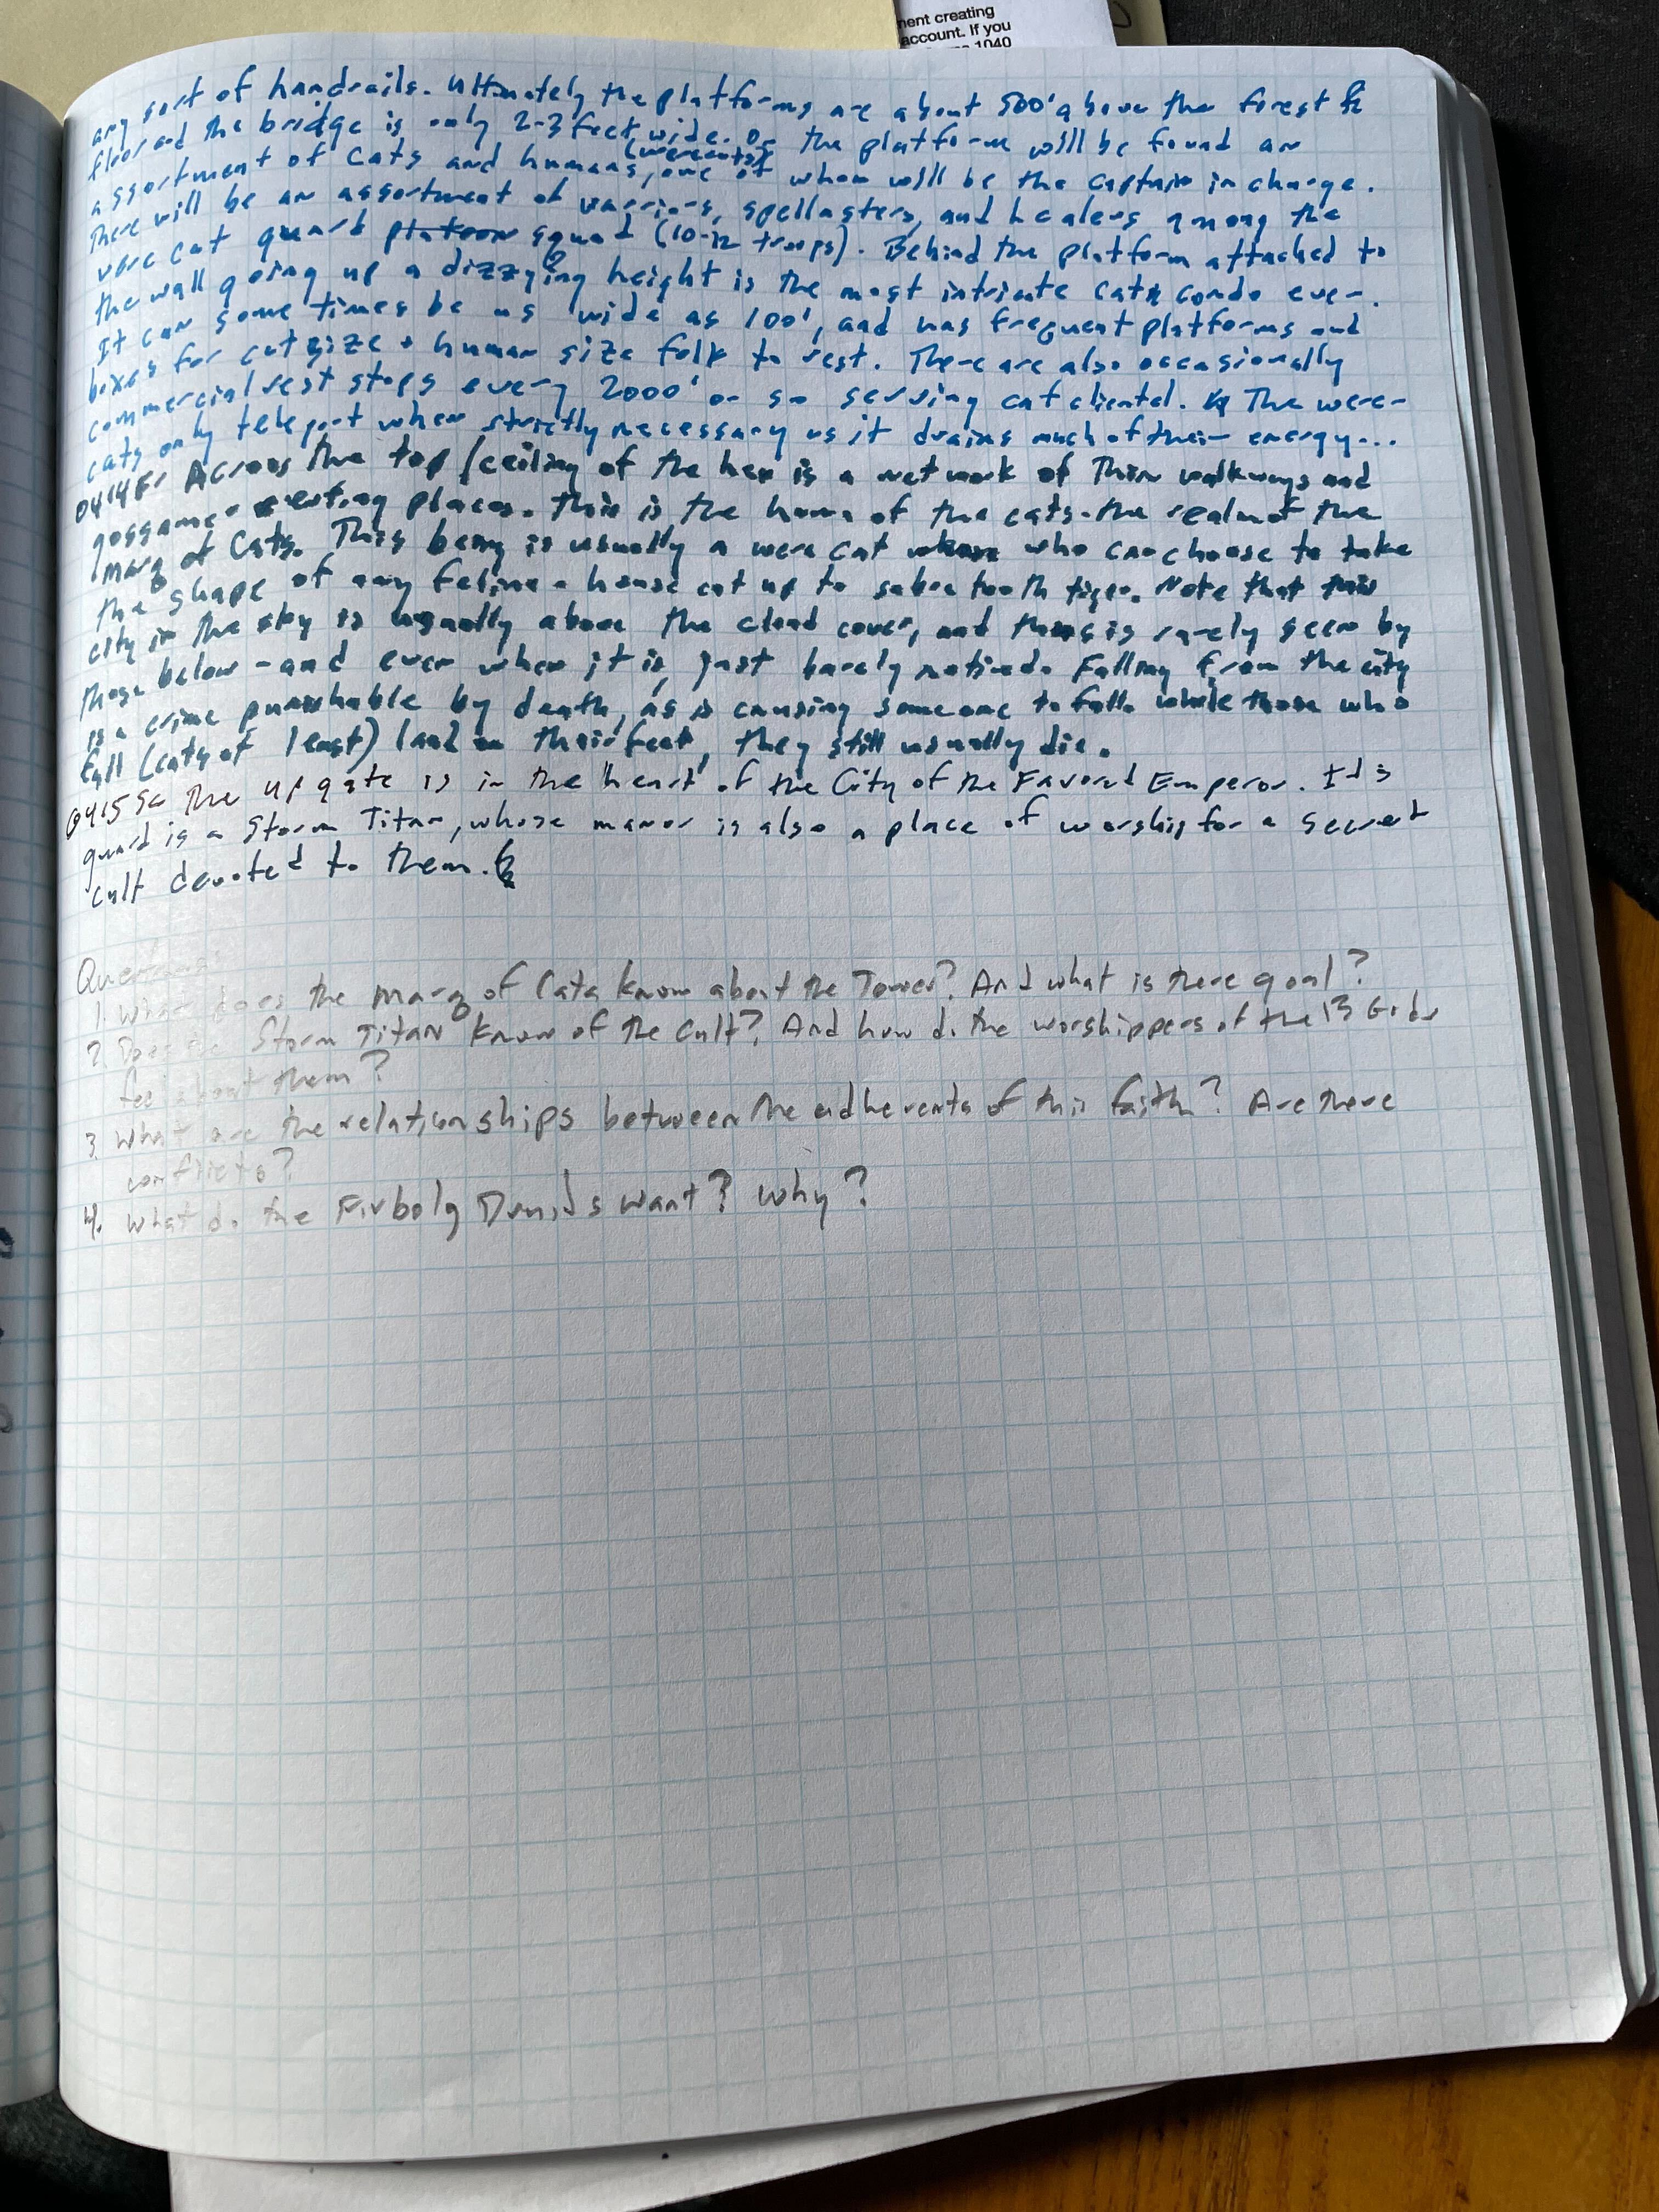 nent creating
account. If you
1040
any sort of handrails. Ultimately the platforms are about 500' above the forest
floor and the bridge is only 2-3 feet wide. On the platform will be found an
assortment of cats and humans (werecats), one of whom will be the captain in charge.
There will be an assortment of warriors, spellcasters, and healers among the
were cat guard platoon squad (10-12 troops). Behind the platform attached to
the wall going up a dizzying height is the most intricate cat condo ever.
It can some times be as wide as 100', and has frequent platforms and
boxes for cat size + human size folk to rest. There are also occasionally
commercial rest stops every 2000' or so serving cat cliental. The were-
cats only teleport when strictly necessary as it drains much of their energy...
0414F: Across the top/ceiling of the hex is a network of thin walkways and
gossamer resting places. This is the home of the cats - the realm of the
marq of Cats. This being is usually a were cat who can choose to take
the shape of any feline - house cat up to saber tooth tiger. Note that this
city in the sky is usually above the cloud cover, and thus is rarely seen by
those below - and even when it is, just barely noticed. Falling from the city
is a crime punishable by death, as is causing someone to fall. While those who
fall (cats at least) land on their feet, they still usually die.
0415S: The up gate is in the "heart" of the City of the Favored Emperor. It's
guard is a Storm Titan, whose manor is also a place of worship for a secret
cult devoted to them.
Questions:
1. What does the marq of Cats know about the Tower? And what is there goal?
2. Does the Storm Titan know of the cult? And how do the worshippers of the 13 Gods
feel about them?
3. What are the relationships between the adherents of this faith? Are there
conflicts?
4. What do the Firbolg Druids want? Why?